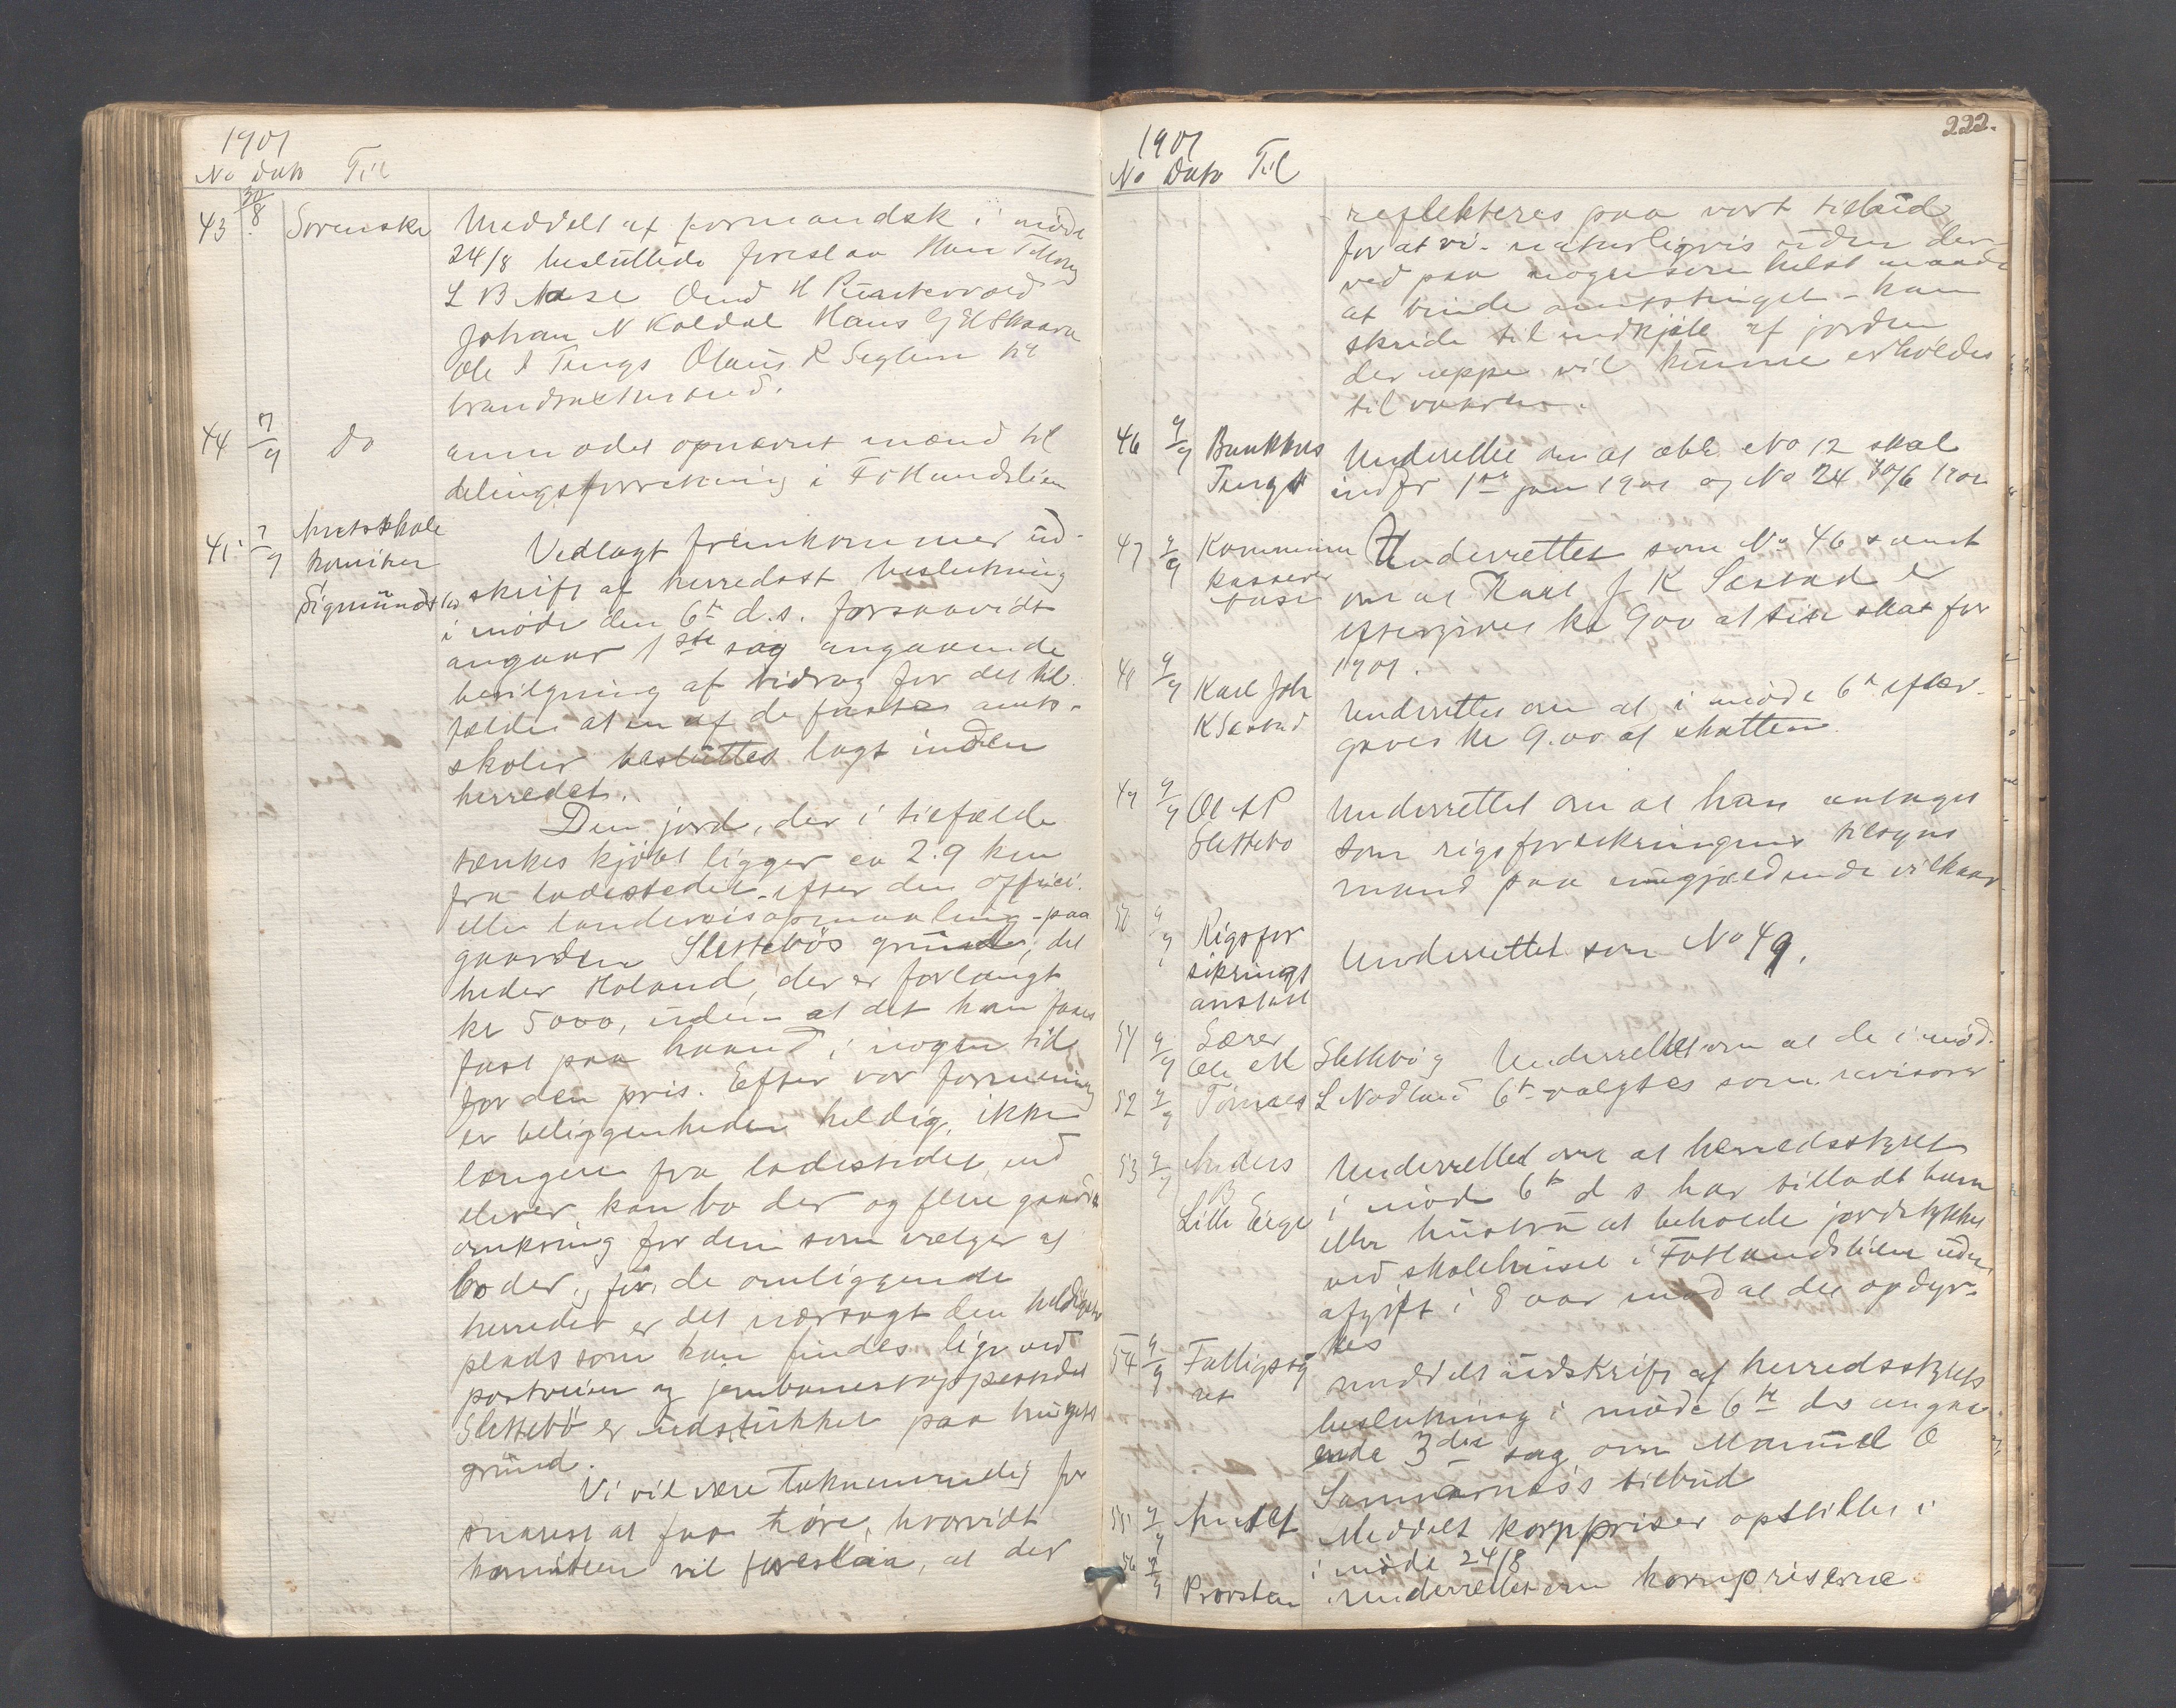 1901
No Dato Til
43 30/8 Sorenskr Meddelt at formandsk i møde
24/8 besluttede foreslaa Hans Tillung
L B Aase Omd H Puntervold
Johan N Koldal Hans G H Skaara
Ole I Tengs Olaus R Seglem til
brandtaxtmænd.
44 7/9 do anmodet opnævnt mænd til
delingsforretning i Fotlandslien
45 7/9 Amtsskole
komiteen
Sigmundstad
Vedlagt fremkommer ud-
skrift af herredsst beslutning
i møde den 6te d.s. forsaavidt
angaar 1ste sag angaaende
bevilgning af bidrag for det til-
fælde at en af de faste amts-
skoler besluttes lagt inden
herredet.
Den jord, der i tilfælde
tænkes kjøbt ligger ca 2.9 km
fra ladestedet - efter den offici-
elle landeveisopmaaling - paa
gaarden Slettebøs grund, det
heder Haland, der er forlangt
kr 5000, uden at det kan faaes
fast paa haand i nogen tid
for den pris. Efter vor formening
er beliggenheden heldig, ikke
længere fra ladestedet end
elever kan bo der og flere gaarde
omkring for dem som vælger at
bo der, for de omliggende
herreder er det næsagt den heldigste
plads som kan findes lige ved
postveien og jernbanestoppestedet
Slettebø er udstukket paa brugets
grund.
Vi vil være taknemmelig for
snarest at faa høre, hvorvidt
komiteen vil foreslaa, at der
222.
1901
No Dato Til
reflekteres paa vort tilbud
for at vi - naturligvis uden der-
ved paa nogensomhelst maade
at binde amtstinget - kan
skride til indkjøb af jorden
der neppe vil kunne erholdes
til vaaren.
46 9/9 Bankkas
Tengs
Underrettet om at obl. No 12 skal
indfr 1ste jan 1901 og No 24 30/6 1901
47 9/9 Kommune
kasserer
Aase
Underrettet som No 46 samt
om at Karl J K Sæstad er
eftergivet kr 9.00 af sin skat for
1901.
48 9/9 Karl Joh
K Sæstad
Underrettet om at i møde 6te efter-
gaves kr 9.00 af skatten.
49 9/9 Ole A P
Slettebø
Underrettet om at han antages
som rigsforsikringens tilsyns
mand paa omgjældende vilkaar
50 9/9 Rigsfor
sikrings
anstalt
Underrettet som No 49.
51 9/9 Lærer
Ole M Slettebø og Underrettet om at de i mød.
52 9/9 Tønnes L Nodland 6te valgtes som revisorer
53 9/9 Anders
B
Lille Eige
Underrettet om at herredsstyret
i møde 6te d s har tilladt ham
eller hustru at beholde jordstykket
ved skolehuset i Fotlandslien uden
afgift i 8 aar mod at det opdyr-
kes
54 9/9 Fattigsty
ret
meddelt udskrift af herredsstyrets
beslutning i møde 6te ds angaa-
ende 3die sag om Manuel O
Svanarnes's tilbud
55 9/9 Amtet Meddelt kornpriser opstillet i
i møde 24/8
56 9/9 Provsten Underrettet om kornpriserne